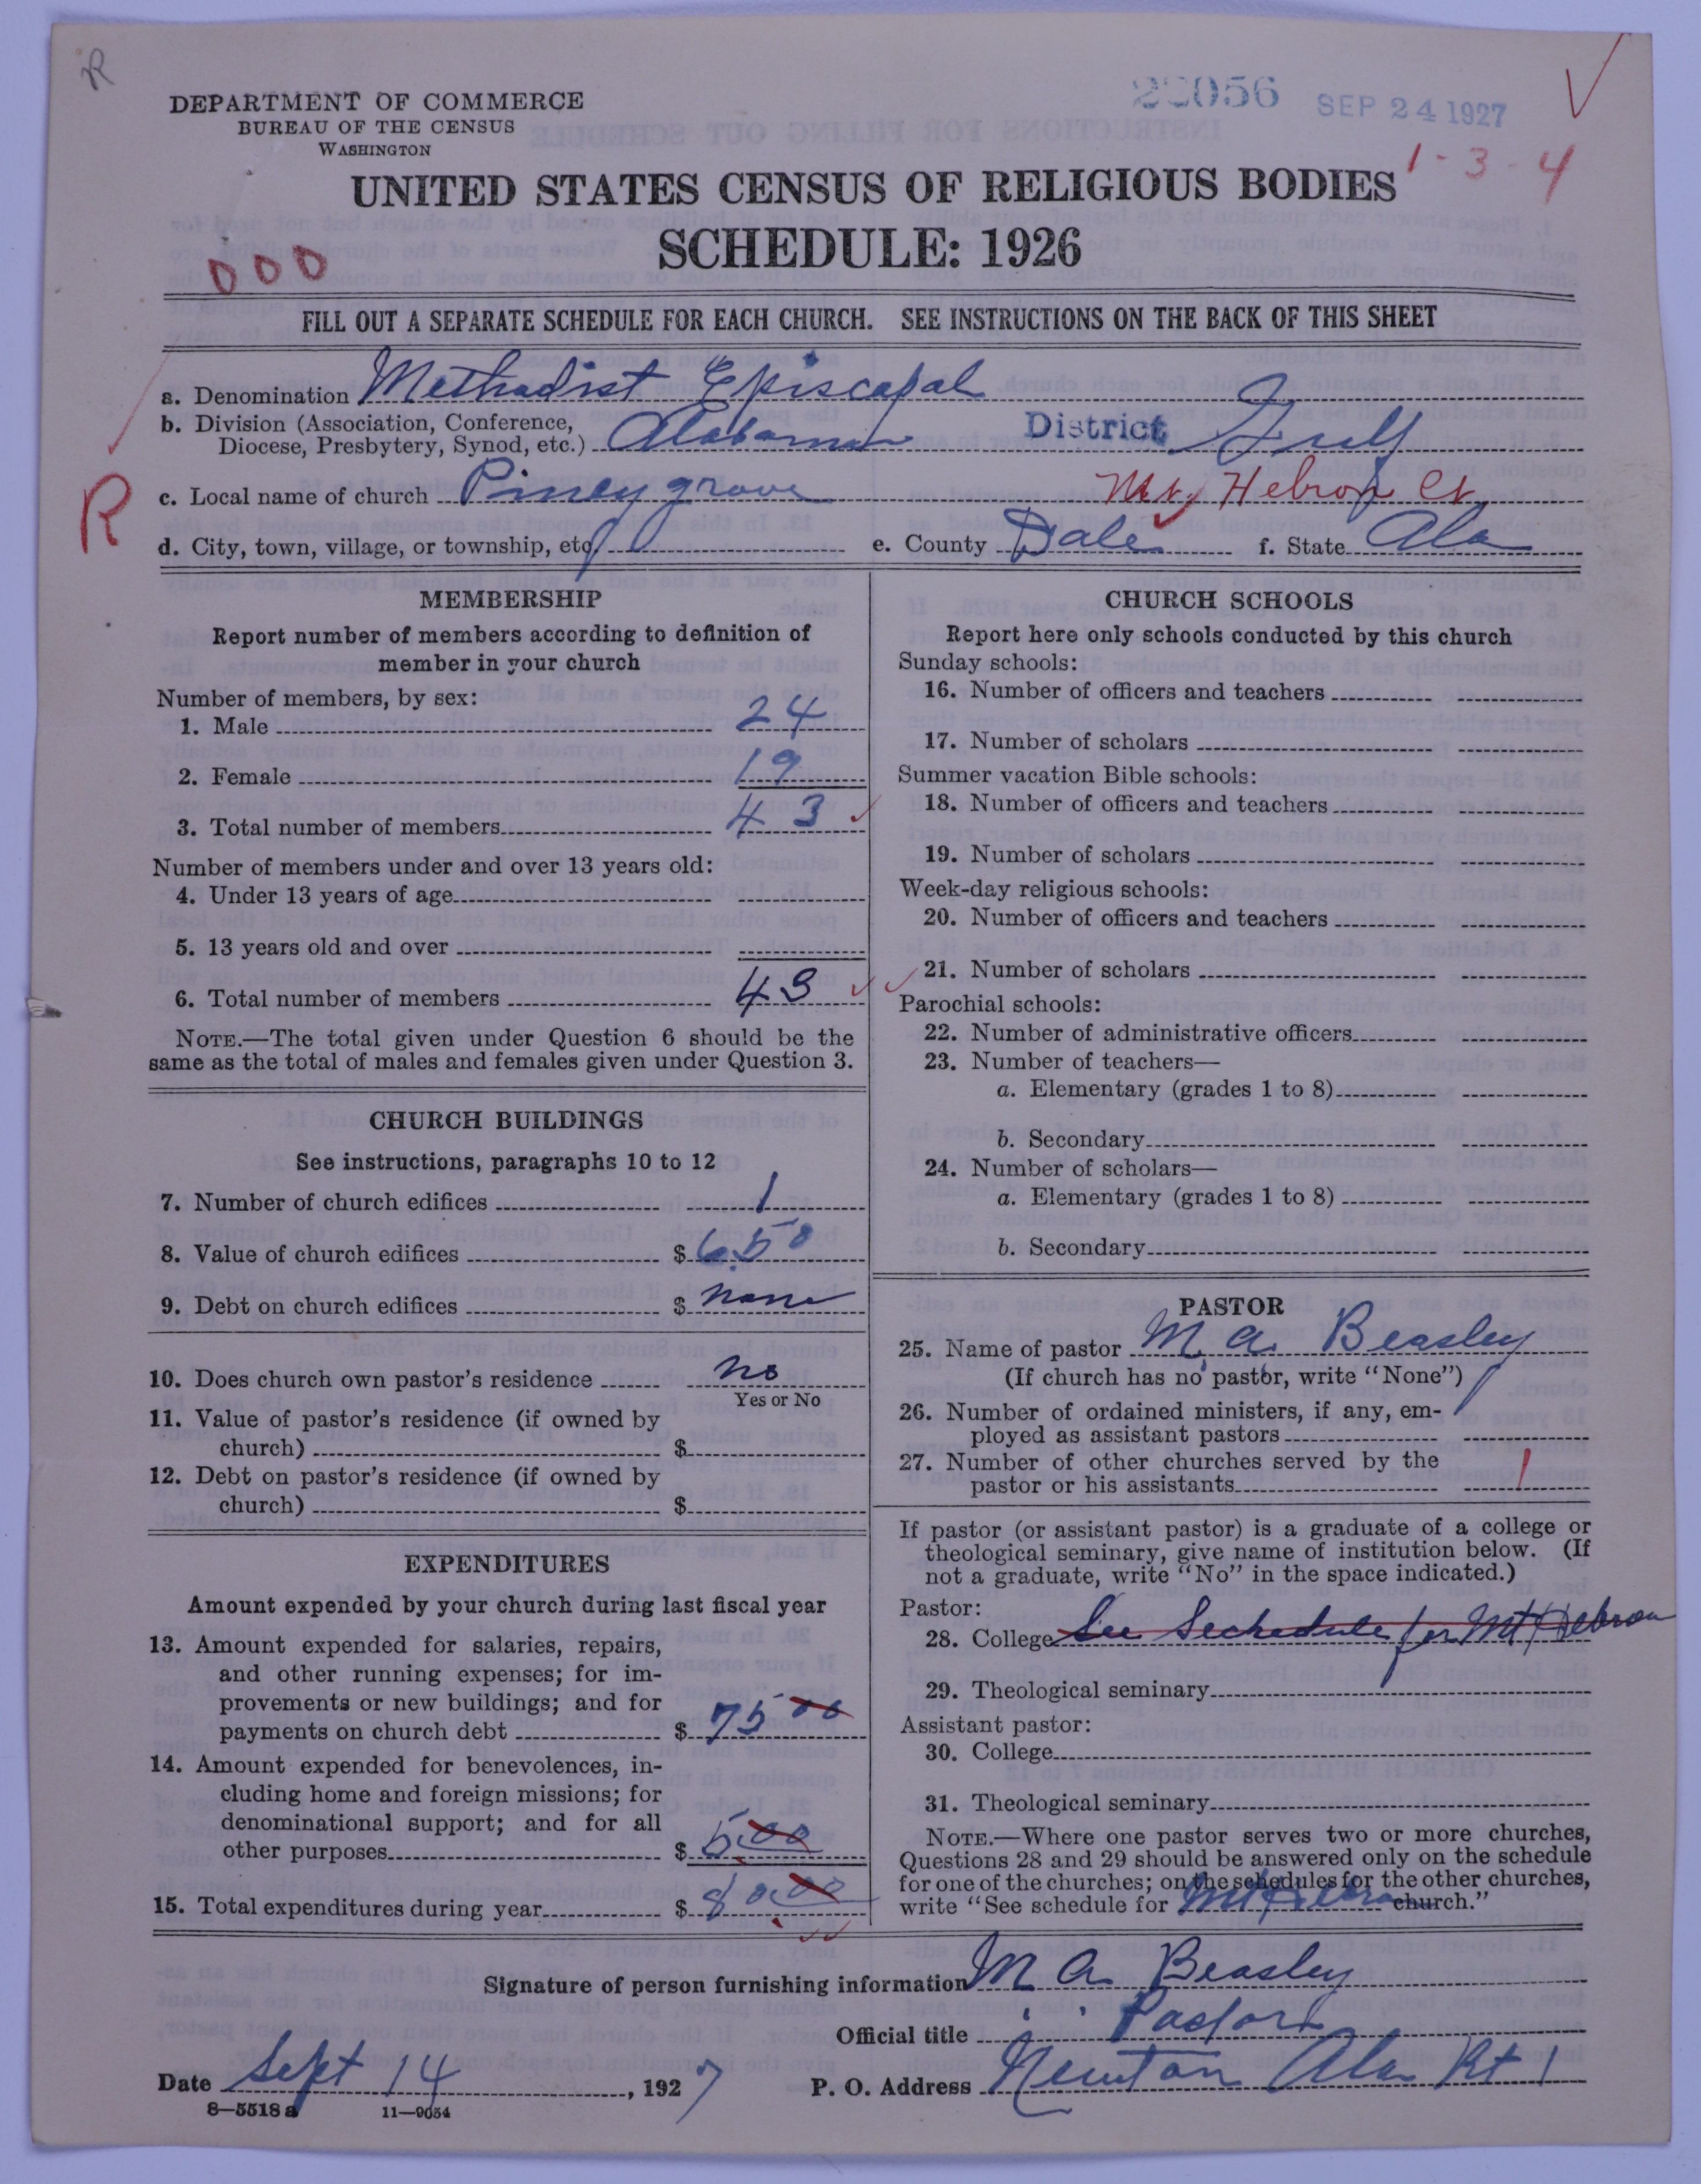 R
DEPARTMENT OF COMMERCE
BUREAU OF THE CENSUS
WASHINGTON
SEP 24 1927
1-3-4
UNITED STATES CENSUS OF RELIGIOUS BODIES
SCHEDULE: 1926
000
FILL OUT A SEPARATE SCHEDULE FOR EACH CHURCH. SEE INSTRUCTIONS ON THE BACK OF THIS SHEET
a. Denomination Methodist Episcopal
b. Division (Association, Conference,
Diocese, Presbytery, Synod, etc.) Alabama District Gulf
R
c. Local name of church Pineygrove Mt Hebron Ct
d. City, town, village, or township, etc. e. County Dale f. State Ala
MEMBERSHIP
Report number of members according to definition of
member in your church
Number of members, by sex:
1. Male 24
2. Female 19
3. Total number of members 43
Number of members under and over 13 years old:
4. Under 13 years of age
5. 13 years old and over
6. Total number of members 43
NOTE.—The total given under Question 6 should be the
same as the total of males and females given under Question 3.
CHURCH BUILDINGS
See instructions, paragraphs 10 to 12
7. Number of church edifices 1
8. Value of church edifices $ 650
9. Debt on church edifices $ none
10. Does church own pastor's residence no
Yes or No
11. Value of pastor's residence (if owned by
church) $
12. Debt on pastor's residence (if owned by
church) $
EXPENDITURES
Amount expended by your church during last fiscal year
13. Amount expended for salaries, repairs,
and other running expenses; for im-
provements or new buildings; and for
payments on church debt $ 75 00
14. Amount expended for benevolences, in-
cluding home and foreign missions; for
denominational support; and for all
other purposes $ 5.00
15. Total expenditures during year $ 80.00
CHURCH SCHOOLS
Report here only schools conducted by this church
Sunday schools:
16. Number of officers and teachers
17. Number of scholars
Summer vacation Bible schools:
18. Number of officers and teachers
19. Number of scholars
Week-day religious schools:
20. Number of officers and teachers
21. Number of scholars
Parochial schools:
22. Number of administrative officers
23. Number of teachers—
a. Elementary (grades 1 to 8)
b. Secondary
24. Number of scholars—
a. Elementary (grades 1 to 8)
b. Secondary
PASTOR
25. Name of pastor M. A. Beasley
(If church has no pastor, write "None")
26. Number of ordained ministers, if any, em-
ployed as assistant pastors
27. Number of other churches served by the
pastor or his assistants 1
If pastor (or assistant pastor) is a graduate of a college or
theological seminary, give name of institution below. (If
not a graduate, write "No" in the space indicated.)
Pastor:
28. College See Sechedule for Mt Hebron
29. Theological seminary
Assistant pastor:
30. College
31. Theological seminary
NOTE.—Where one pastor serves two or more churches,
Questions 28 and 29 should be answered only on the schedule
for one of the churches; on the schedules for the other churches,
write "See schedule for Mt Hebron church."
Signature of person furnishing information M. A. Beasley
Official title Pastor
Date Sept 14, 1927 P. O. Address Newton Ala Rt 1
8—5518 a 11—9054